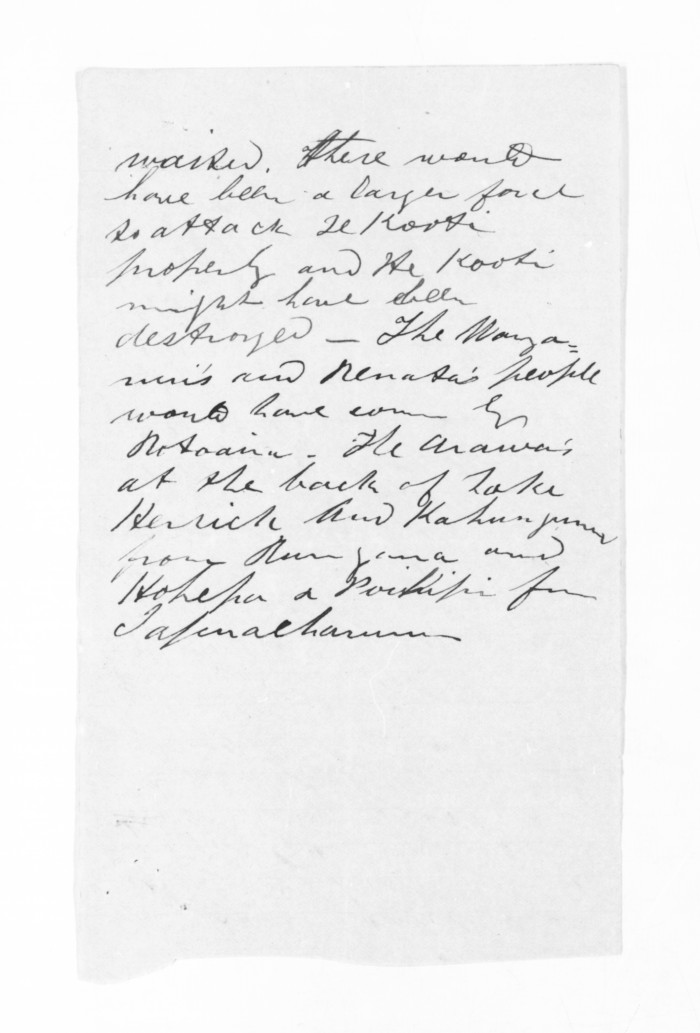 waited. There would
have been a larger force
to attack Te Kooti
properly and Te Kooti
might have been
destroyed — The Wanga=
nui's and Renata's people
would have come by
Rotoaira. The Arawa's
at the back of Lake
Herrick And Kahungunu
from Runanga and
Hohepa & Poihipi from
Tapuaeharuru